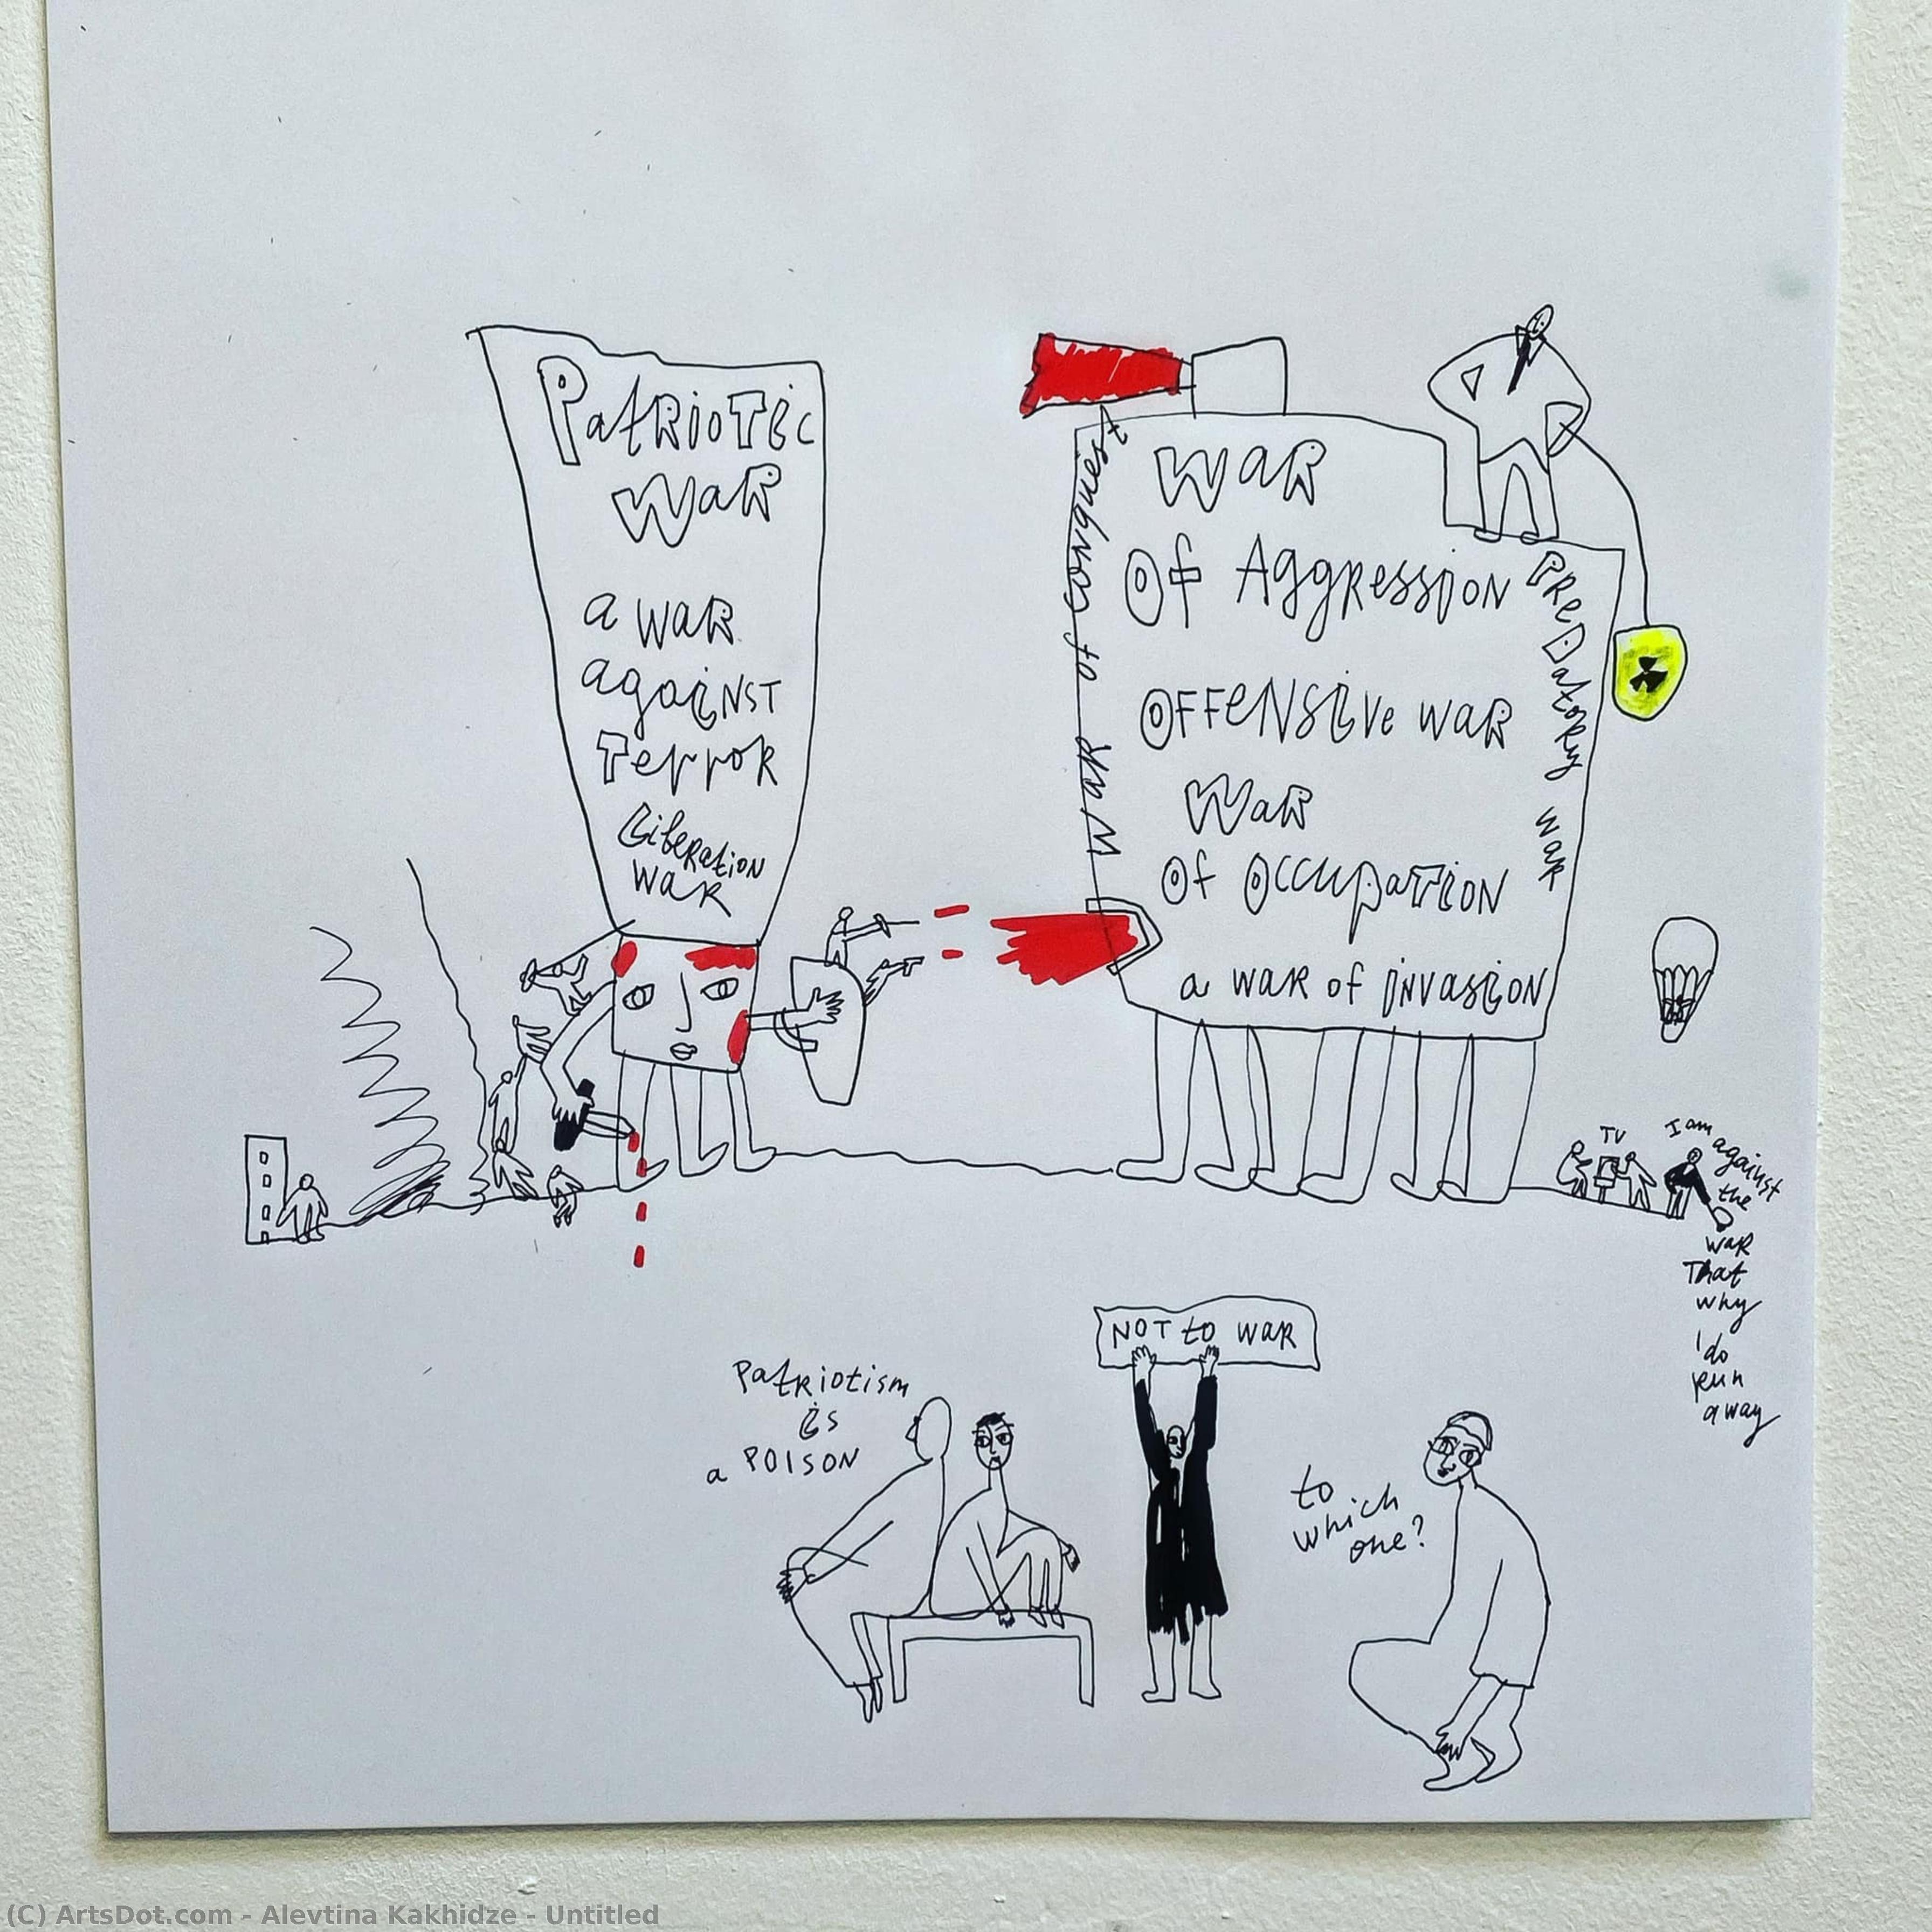 Patriotic
War
a war
against
Terror
Liberation
war
War of conquest
War
Of Aggression
Offensive war
War
Of Occupation
a war of invasion
Predatory war
TV
I am
against
the
war
That
why
I do
run
away
NOT to WAR
Patriotism
is
a POISON
to
which
one?
(C) ArtsDot.com - Alevtina Kakhidze - Untitled